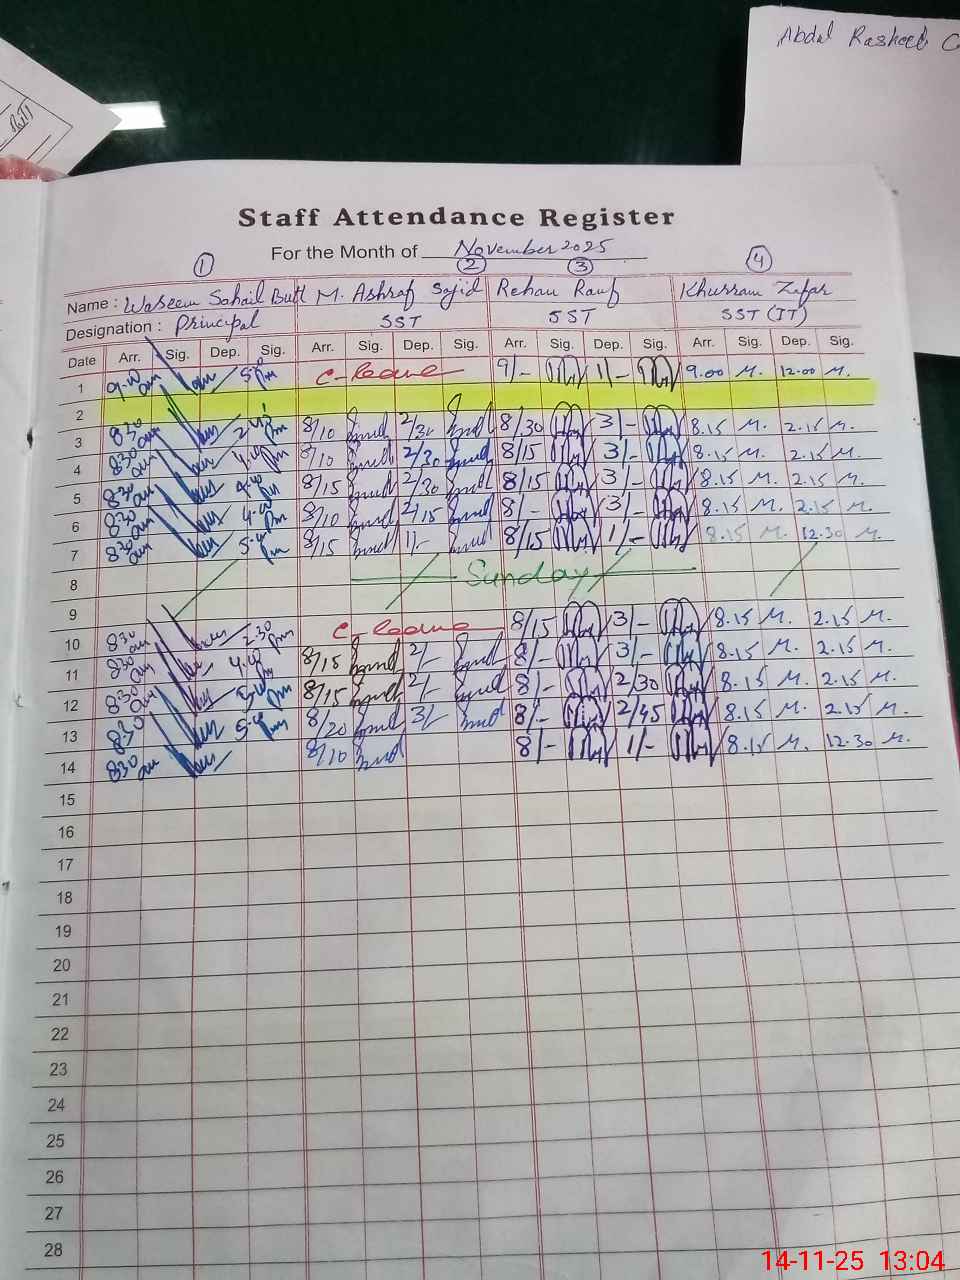 Abdul Rasheed
Staff Attendance Register
For the Month of November 2025
1 2 3 4
Name : Waseem Sohail Butt M. Ashraf Sajid Rehan Rauf Khurram Zafar
Designation : Principal SST SST SST (IT)
Date Arr. Sig. Dep. Sig. Arr. Sig. Dep. Sig. Arr. Sig. Dep. Sig. Arr. Sig. Dep. Sig.
1 9.00 am 5.00 pm C-leave 9/- 1/- 9.00 M. 12.00 M.
2
3 830 am pm 8/10 2/30 8/30 3/- 8.15 M. 2.15 M.
4 830 am 4.00 pm 8/10 2/30 8/15 3/- 8.15 M. 2.15 M.
5 830 am pm 8/15 2/30 8/15 3/- 8.15 M. 2.15 M.
6 830 am 4.00 pm 8/10 2/15 8/- 3/- 8.15 M. 2.15 M.
7 830 am 5.00 pm 8/15 1/- 8/15 1/- 8.15 M. 12.30 M.
8 Sunday
9
10 830 am 2.30 pm C-leave 8/15 3/- 8.15 M. 2.15 M.
11 830 am 4.00 pm 8/15 2/- 8/- 3/- 8.15 M. 2.15 M.
12 830 am pm 8/15 2/- 8/- 2/30 8.15 M. 2.15 M.
13 830 5.00 pm 8/20 3/- 8/- 2/45 8.15 M. 2.15 M.
14 830 am 8/10 8/- 1/- 8.15 M. 12.30 M.
15
16
17
18
19
20
21
22
23
24
25
26
27
28
14-11-25 13:04